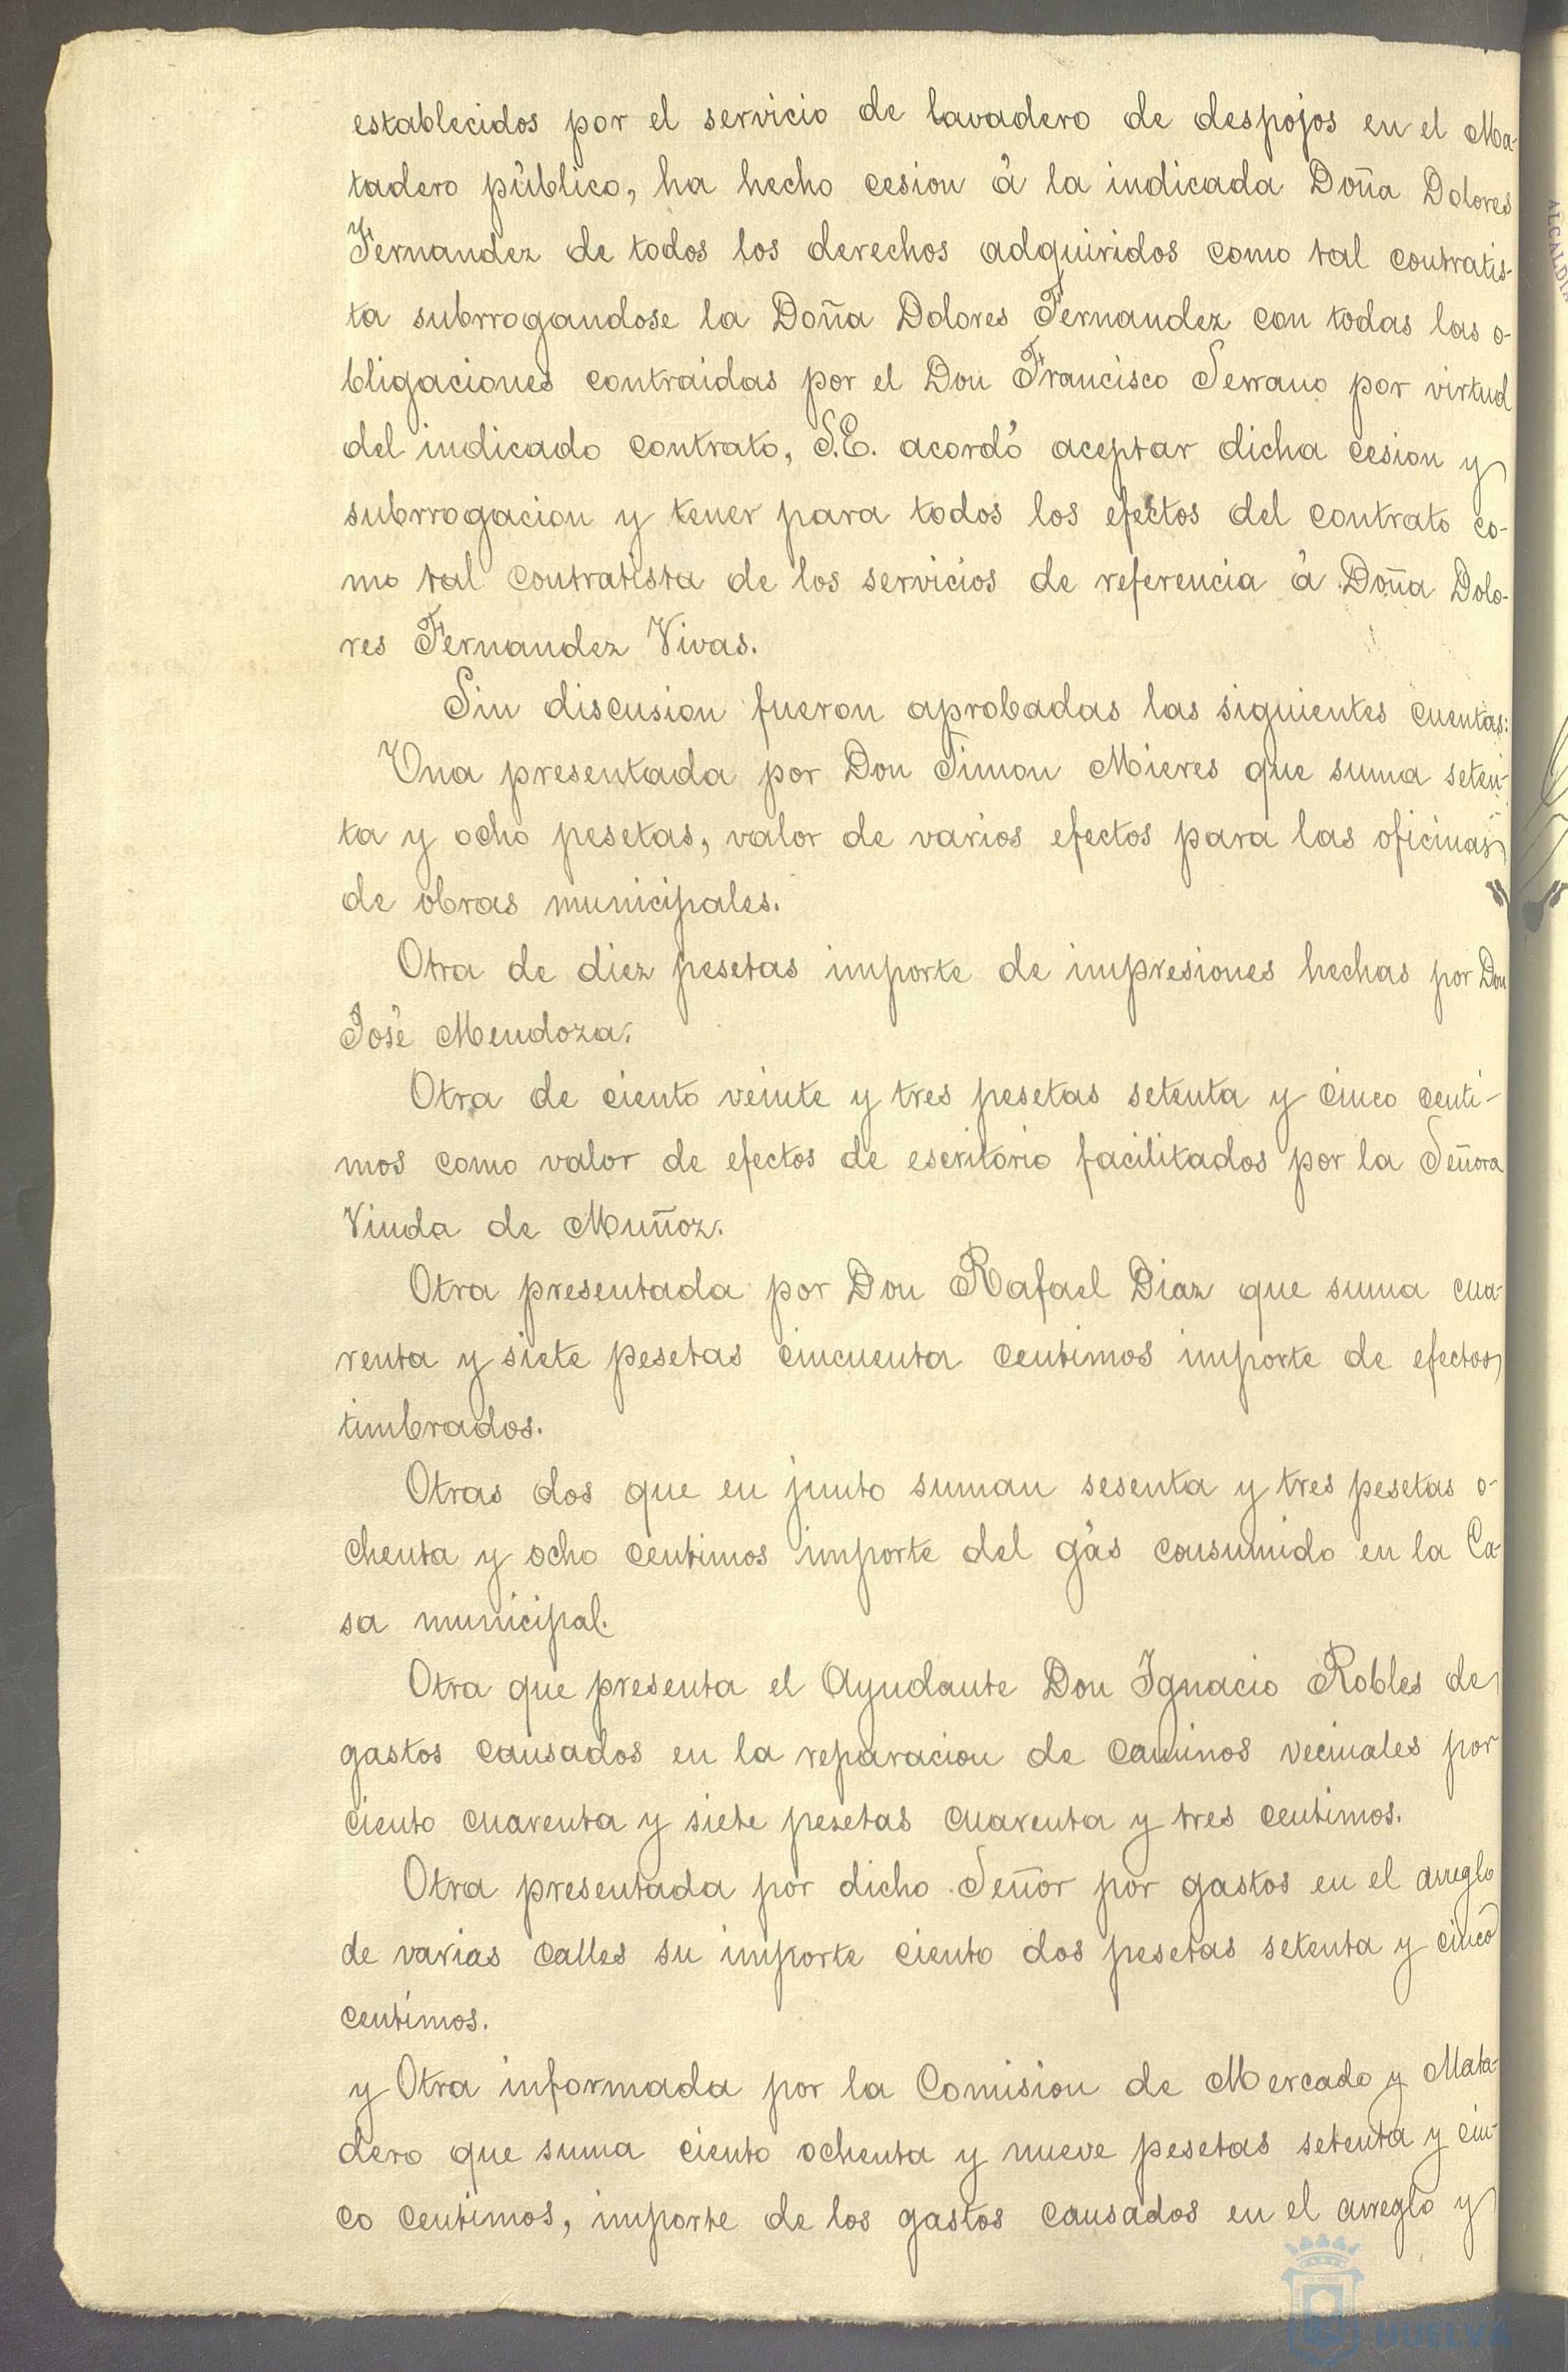 establecidos por el servicio de lavadero de despojos en el Ma-
tadero público, ha hecho cesion á la indicada Doña Dolores
Fernandez de todos los derechos adquiridos como tal contratis-
ta subrrogandose la Doña Dolores Fernandez con todas las o-
bligaciones contraidas por el Don Francisco Serrano por virtud
del indicado contrato, S.E. acordó aceptar dicha cesion y
subrrogacion y tener para todos los efectos del contrato co-
mo tal contratista de los servicios de referencia á Doña Dolo-
res Fernandez Vivas.
Sin discusion fueron aprobadas las siguientes cuentas:
Una presentada por Don Simon Mieres que suma seten-
ta y ocho pesetas, valor de varios efectos para las oficinas
de obras municipales.
Otra de diez pesetas importe de impresiones hechas por Don
José Mendoza.
Otra de ciento veinte y tres pesetas setenta y cinco centi-
mos como valor de efectos de escritorio facilitados por la Señora
Viuda de Muñoz.
Otra presentada por Don Rafael Diaz que suma cua-
renta y siete pesetas cincuenta centimos importe de efectos
timbrados.
Otras dos que en junto suman sesenta y tres pesetas o-
chenta y ocho centimos importe del gás consumido en la Ca-
sa municipal.
Otra que presenta el Ayudante Don Ignacio Robles de
gastos causados en la reparacion de caminos vecinales por
ciento cuarenta y siete pesetas cuarenta y tres centimos.
Otra presentada por dicho Señor por gastos en el arreglo
de varias calles su importe ciento dos pesetas setenta y cinco
centimos.
y Otra informada por la Comision de Mercado y Mata-
dero que suma ciento ochenta y nueve pesetas setenta y cin-
co centimos, importe de los gastos causados en el arreglo y
HUELVA